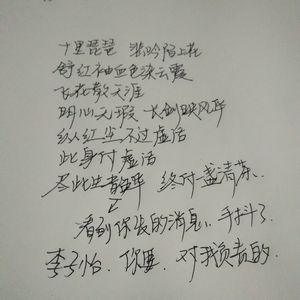 十里琵琶 浅吟陌上花
舒红袖血色染云霞
飞花散天涯
明心无瑕 长剑映风华
纵红尘不过虚话
此身付虚话
尽此生 华 终付一盏清茶.
看到你发的消息、手抖了.
李子怡. 你要 对我负责的.